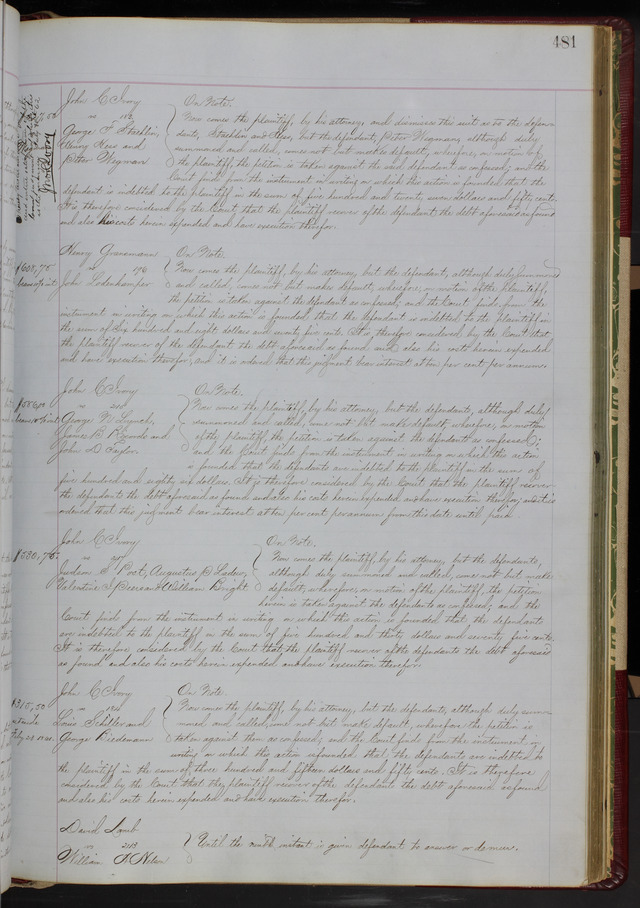 481
John C Ivory
vs 112
George F Staehlin,
Henry Hess and
Peter Wegman
On Note.
Now comes the plaintiff, by his attorney, and dismisses this suit as to the defen-
dants, Staehlin and Hess, but the defendant, Peter Wegman, although duly
summoned and called, comes not but makes default; wherefore, on motion of
the plaintiff, the petition is taken against the said defendant as confessed; and the
Court finds from the instrument in writing on which this action is founded that the
defendant is indebted to the plaintiff in the sum of five hundred and twenty seven dollars and fifty cents.
It is therefore considered by the Court that the plaintiff recover of the defendant the debt aforesaid as found
and also his costs herein expended and have execution therefor.
$608,75
bears 10 pr ct
Henry Gronemann
vs 176
John Lodenkamper
On Note.
Now comes the plaintiff, by his attorney, but the defendant, although duly summoned
and called, comes not but makes default; wherefore, on motion of the plaintiff,
the petition is taken against the defendant as confessed; and the Court finds from the
instrument in writing on which this action is founded, that the defendant is indebted to the plaintiff in
the sum of Six hundred and eight dollars and seventy five cents. It is, therefore considered by the Court that
the plaintiff recover of the defendant the debt aforesaid as found and also his costs herein expended
and have execution therefor, and it is ordered that this judgment bear interest at ten per cent per annum.
John C Ivory
vs
George W Lynch,
James and
John D Taylor.
On Note.
Now comes the plaintiff, by his attorney, but the defendants, although duly
summoned and called, come not but make default; wherefore, on motion
of the plaintiff the petition is taken against the defendants as confessed;
and the Court finds from the instrument in writing on which the action
is founded that the defendants are indebted to the plaintiff in the sum of
five hundred and eighty six dollars. It is therefore considered by the Court that the plaintiff recover of
the defendants the debt aforesaid as found and also his costs herein expended and have execution therefor; and it is
ordered that this judgment bear interest at ten per cent per annum from this date until paid
$530,75
John C Ivory
vs
Poet, Augustus Ladew,
Valentine J and William Bright
On Note.
Now comes the plaintiff, by his attorney, but the defendants,
although duly summoned and called, come not but make
default; wherefore, on motion of the plaintiff, the petition
herein is taken against the defendants as confessed; and the
Court finds from the instrument in writing on which this action is founded that the defendants
are indebted to the plaintiff in the sum of five hundred and thirty dollars and seventy five cents.
It is therefore considered by the Court that the plaintiff recover of the defendants the debt aforesaid
as found and also his costs herein expended and have execution therefor
$315,50
John C Ivory
vs
Louis Schiller and
George Riedemann
On Note.
Now comes the plaintiff, by his attorney, but the defendants, although duly sum-
moned and called, come not but make default; wherefore the petition is
taken against them as confessed; and the Court finds from the instrument in
writing on which the action is founded that the defendants are indebted to
the plaintiff in the sum of three hundred and fifteen dollars and fifty cents. It is therefore
considered by the Court that the plaintiff recover of the defendants the debt aforesaid as found
and also his costs herein expended and have execution therefor.
David Lamb
vs 213
William A Nelson
Until the ninth instant is given defendant to answer or demur.